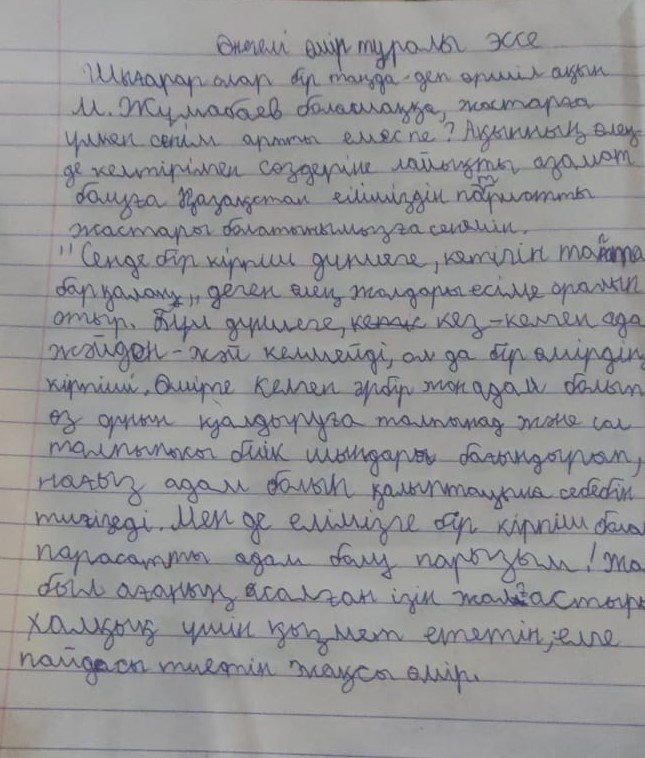 Өнегелі өмір туралы эссе
Шығарар олар бір таңда-деп өршіл ақын
М. Жұмабаев болашаққа, жастарға
үлкен сенім артты емеспе? Ақынның өлең-
де келтірілген сөздеріне лайықты азамат
болуға Қазақстан еліміздің
жастары болатынымызға сенемін.
"Сенде бір кірпіш дүниеге, кетігін тап та
бар қалан„ деген өлең жолдары есіме оралып
отыр. Бұл дүниеге, кез-келген ада
жәйдан-жәй келмейді, ол да бір өмірдің
кірпіші. Өмірге келген әрбір жан адам болып
өз орнын қалдыруға талпынад және сол
талпынысы биік шыңдары бағындырып,
нағыз адам болып қалыптасуына себебін
тигізеді. Мен де елімізге бір кірпіш бола
парасатты адам болу парызым! Жа
был ағаның салған ізін жалғастыры
халқың үшін қызмет ететін, елге
пайдасы тиетін жақсы өмір.